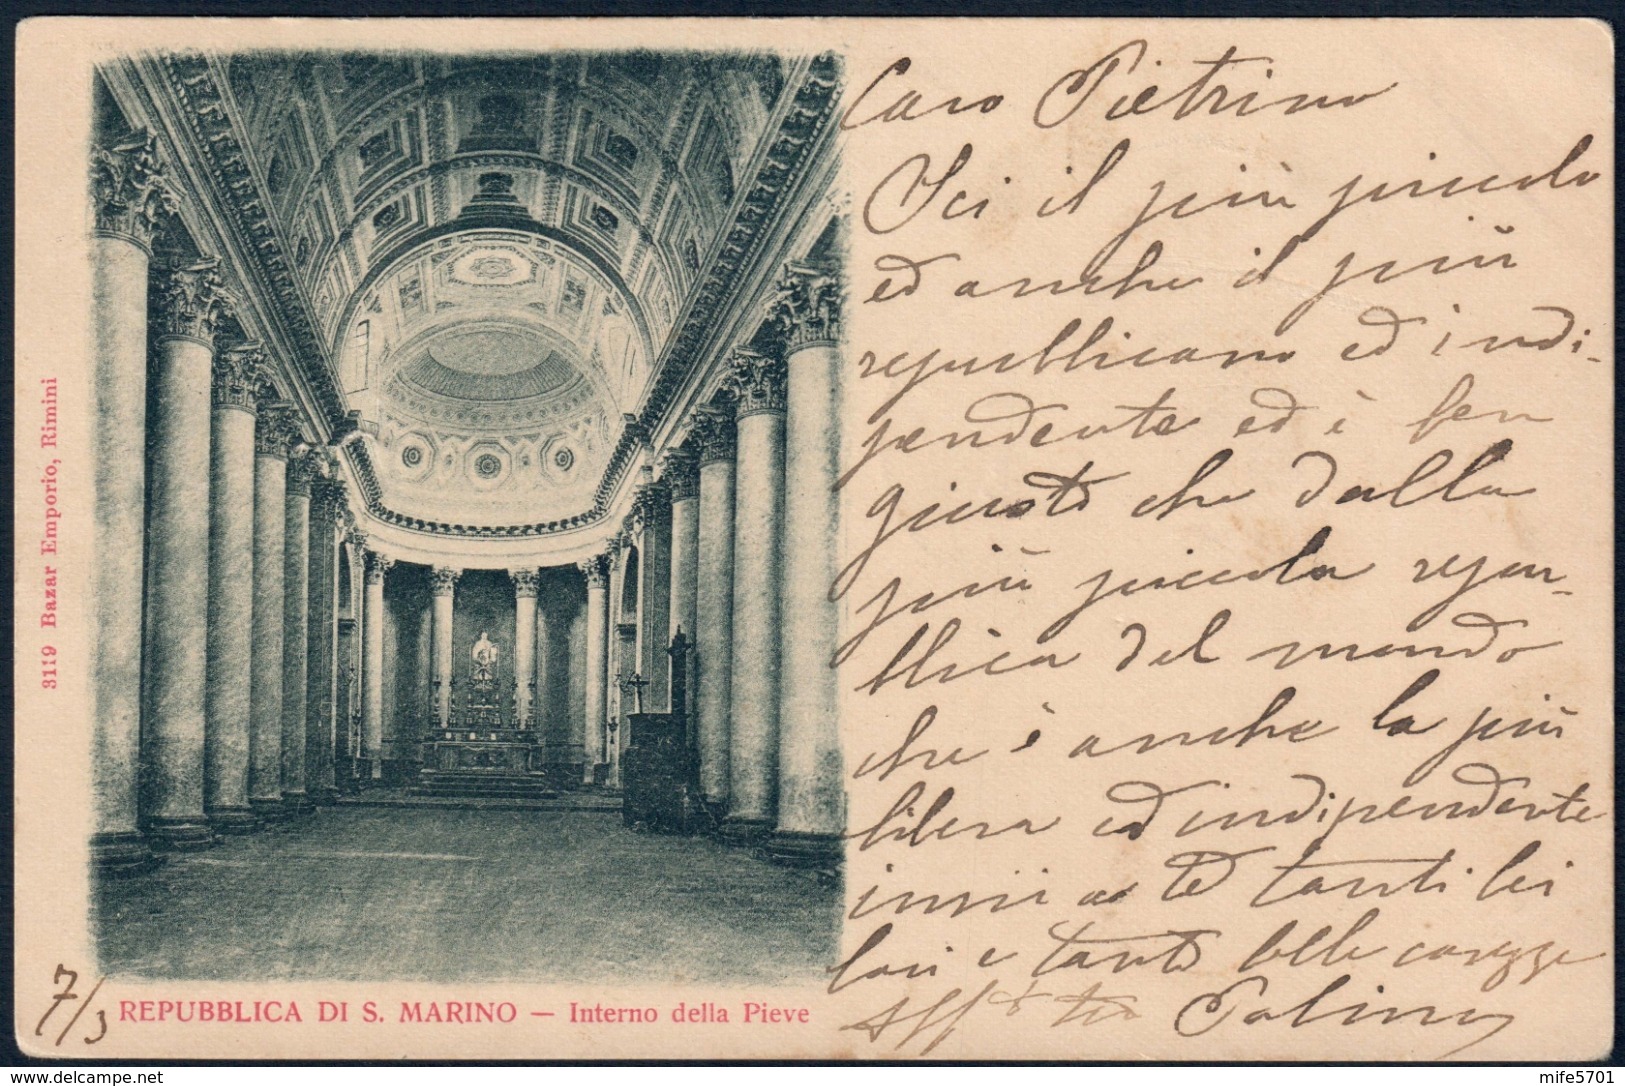 Caro Pietrino
Sei il più piccolo
ed anche il più
republicano ed indi-
pendente ed è ben
giusto che dalla
più piccola repu-
blica del mondo
che è anche la più
libera ed indipendente
invii a te tanti
e tante belle carezze
Aff
7/3
REPUBBLICA DI S. MARINO — Interno della Pieve
3119 Bazar Emporio, Rimini
www.delcampe.net
mife5701